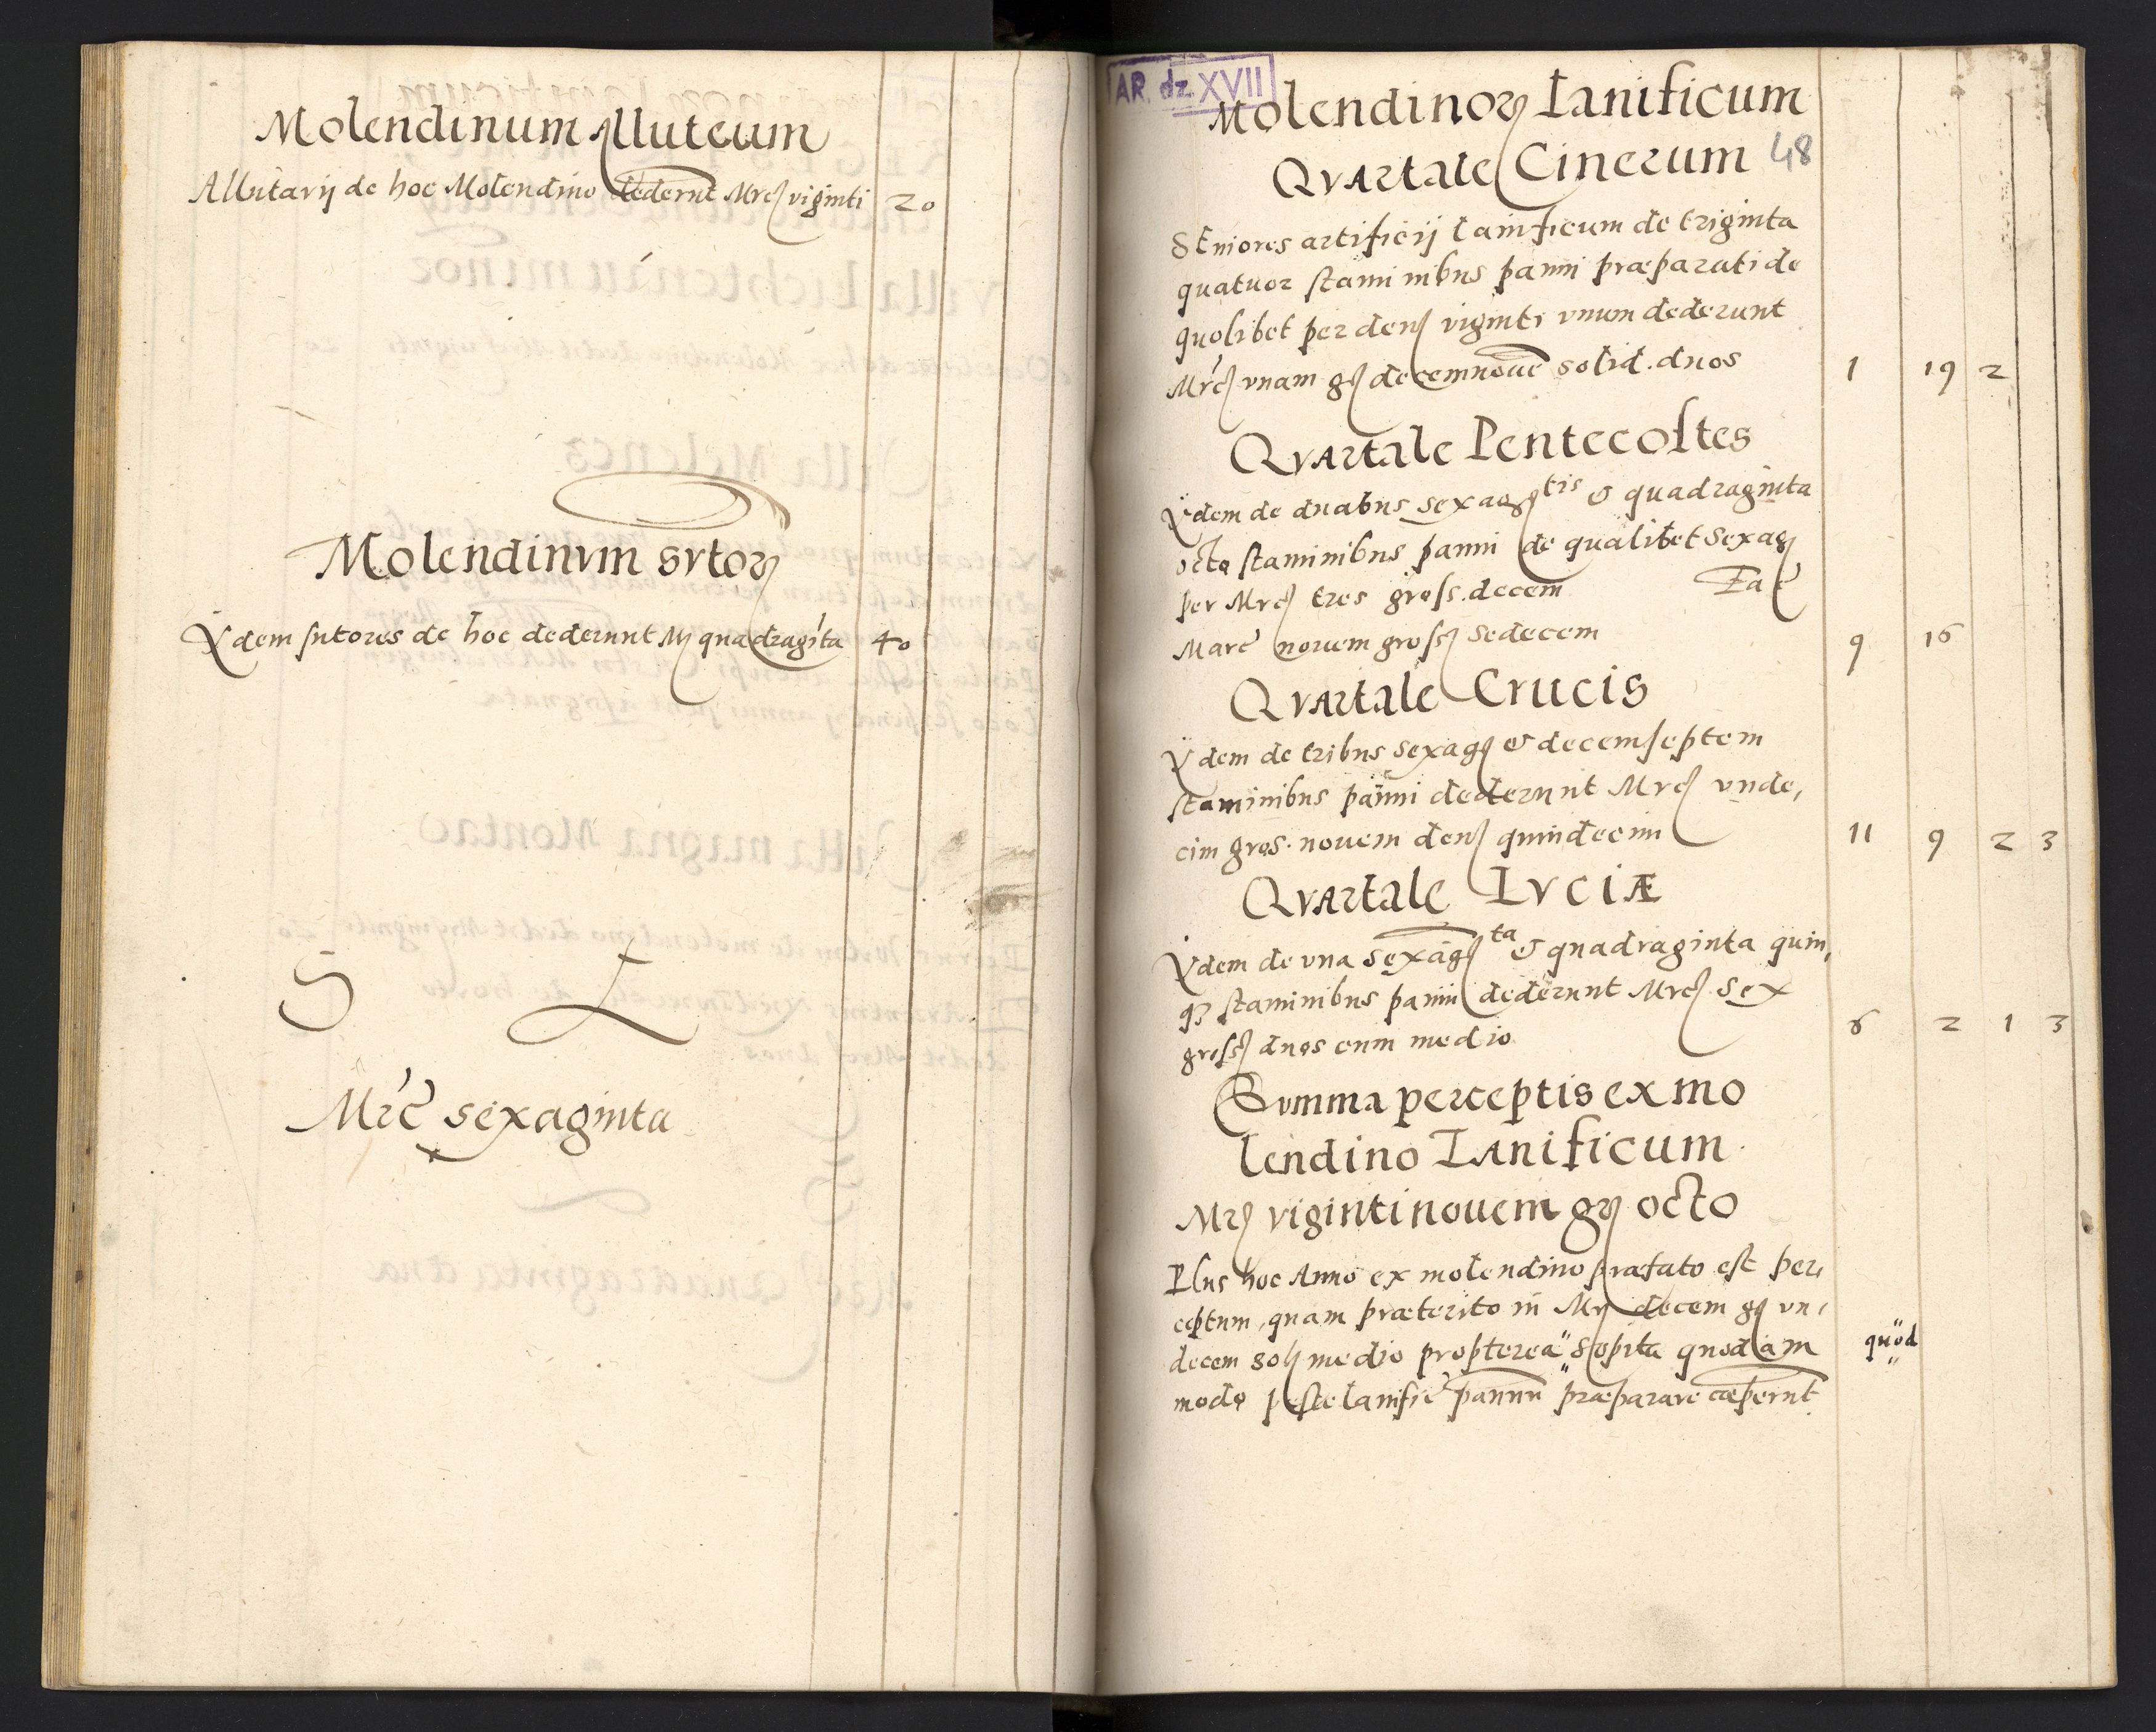 Molendinum Alluteum
Allutarij de hoc Molendino dedernt Mrc viginti 20
Molendinvm svtorꝝ
Ydem sutores de hoc dederunt Mꝝ quadragita 40
S L
Mrc sexaginta
AR. dz. XVII
Molendinoꝝ Lanificum
Qvartale Cinerum 48
Seniores artificij lanificum de triginta
quatuor staminibus panni præparati de
quolibet per den viginti vnum dederunt
Mrc vnam gꝝ decemnoue solid. duos 1 19 2
Qvartale Pentecostes
Ydem de duabus sexagtis & quadraginta
octo staminibus panni de qualibet sexag
per Mrc tres gross. decem Fac
Marc novem gross sedecem 9 16
Qvartale Crucis
Ydem de tribus sexag & decemseptem
staminibus panni dederunt Mrc vnde,
cim gros. novem den quindecim 11 9 2 3
Qvartale Lvciæ
Ydem de vna sexagta & quadraginta quin,
qꝫ staminibus panni dederunt Mrc sex
gross duos cum medio 6 2 1 3
Svmma perceptis ex mo
lendino Lanificum
Mrꝝ viginti novem gꝝ octo
Plus hoc Anno ex molendino præfato est per,
ceptum, quam præterito in Mꝝ decem gꝝ vn,
decem sol medio propterea" sopita quodam quod
modo peste lanific pannu præparare cæpernt